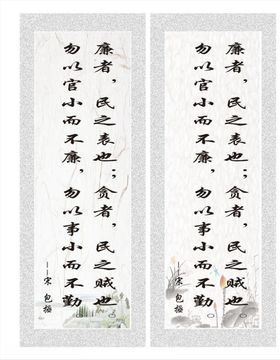 廉者，民之表也；贪者，民之贼也。
勿以官小而不廉，勿以事小而不勤。
——宋 包拯
廉者，民之表也；贪者，民之贼也。
勿以官小而不廉，勿以事小而不勤。
——宋 包拯